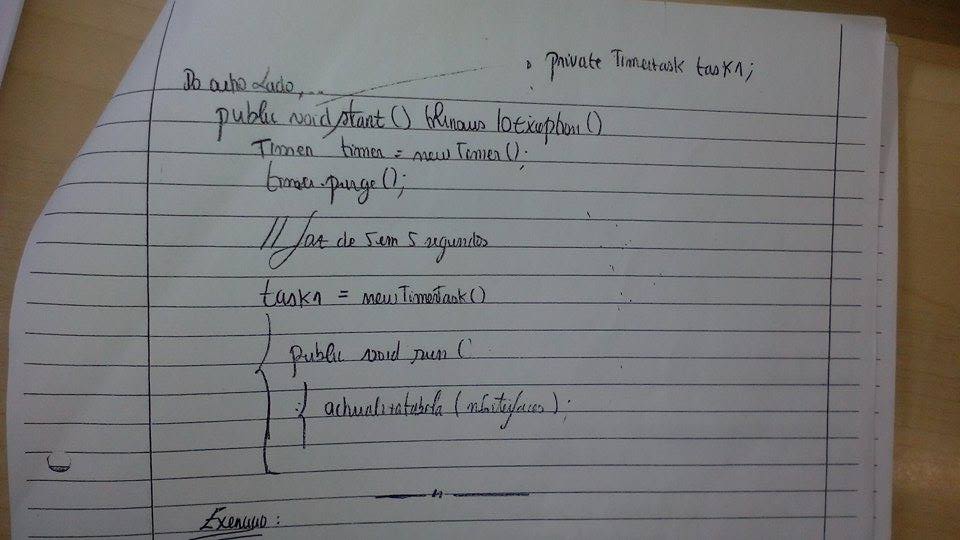 private Timertask task1;
Do outro Lado,...
public void start() throws IOException()
Timer timer = new Timer();
timer.purge();
// faz de 5 em 5 segundos
task1 = new TimerTask()
{
public void run (
{
actualizatabela (nInterfaces);
Exemplo: